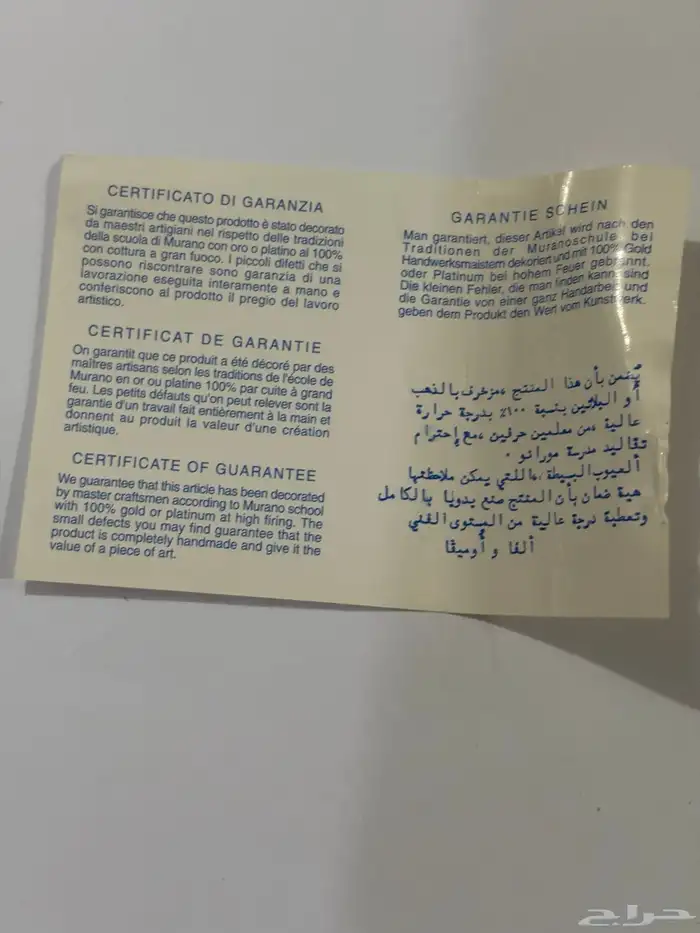 CERTIFICATO DI GARANZIA
Si garantisce che questo prodotto è stato decorato
da maestri artigiani nel rispetto delle tradizioni
della scuola di Murano con oro o platino al 100%
con cottura a gran fuoco. I piccoli difetti che si
possono riscontrare sono garanzia di una
lavorazione eseguita interamente a mano e
conferiscono al prodotto il pregio del lavoro
artistico.
CERTIFICAT DE GARANTIE
On garantit que ce produit a été décoré par des
maîtres artisans selon les traditions de l'école de
Murano en or ou platine 100% par cuite à grand
feu. Les petits défauts qu'on peut relever sont la
garantie d'un travail fait entièrement à la main et
donnent au produit la valeur d'une création
artistique.
CERTIFICATE OF GUARANTEE
We guarantee that this article has been decorated
by master craftsmen according to Murano school
with 100% gold or platinum at high firing. The
small defects you may find guarantee that the
product is completely handmade and give it the
value of a piece of art.
GARANTIE SCHEIN
Man garantiert, dieser Artikel wird nach den
Traditionen der Muranoschule bei
Handwerksmaistern dekoriert und mit 100% Gold
oder Platinum bei hohem Feuer gebrannt.
Die kleinen Fehler, die man finden kann, sind
die Garantie von einer ganz Handarbeit und
geben dem Produkt den Wert vom Kunstwerk.
يضمن بأن هذا المنتج مزخرف بالذهب
أو البلاتين بنسبة ١٠٠٪ بدرجة حرارة
عالية من معلمين حرفين مع إحترام
تقاليد مدرسة مورانو .
العيوب البسيطة والتي يمكن ملاحظتها
هية ضمان بأن المنتج صنع يدويا بالكامل
وتعطية درجة عالية من المستوى الفني
ألفا و أوميقا
حراج